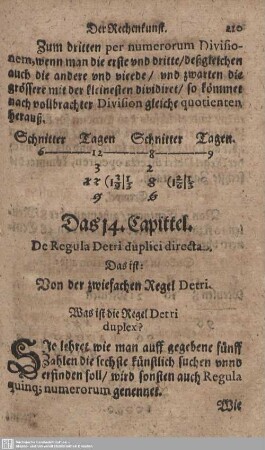 Der Rechenkunst. 210
Zum dritten per numerorum Divisio-
nem, wenn man die erste vnd dritte/ deßgleichen
auch die andere vnd vierde/ vnd zwarten die
grössere mit der kleinesten dividiret/ so kömmet
nach vollbrachter Division gleiche quotienten
herauß.
Schnitter Tagen Schnitter Tagen.
6 12 8 9
3 2
8
9 6
Das 14. Capittel.
De Regula Detri duplici directa.
Das ist:
Von der zwiefachen Regel Detri.
Was ist die Regel Detri
duplex?
SIe lehret wie man auff gegebene fünff
Zahlen die sechste künstlich suchen vnnd
erfinden soll/ wird sonsten auch Regula
quinq; numerorum genennet.
Wie